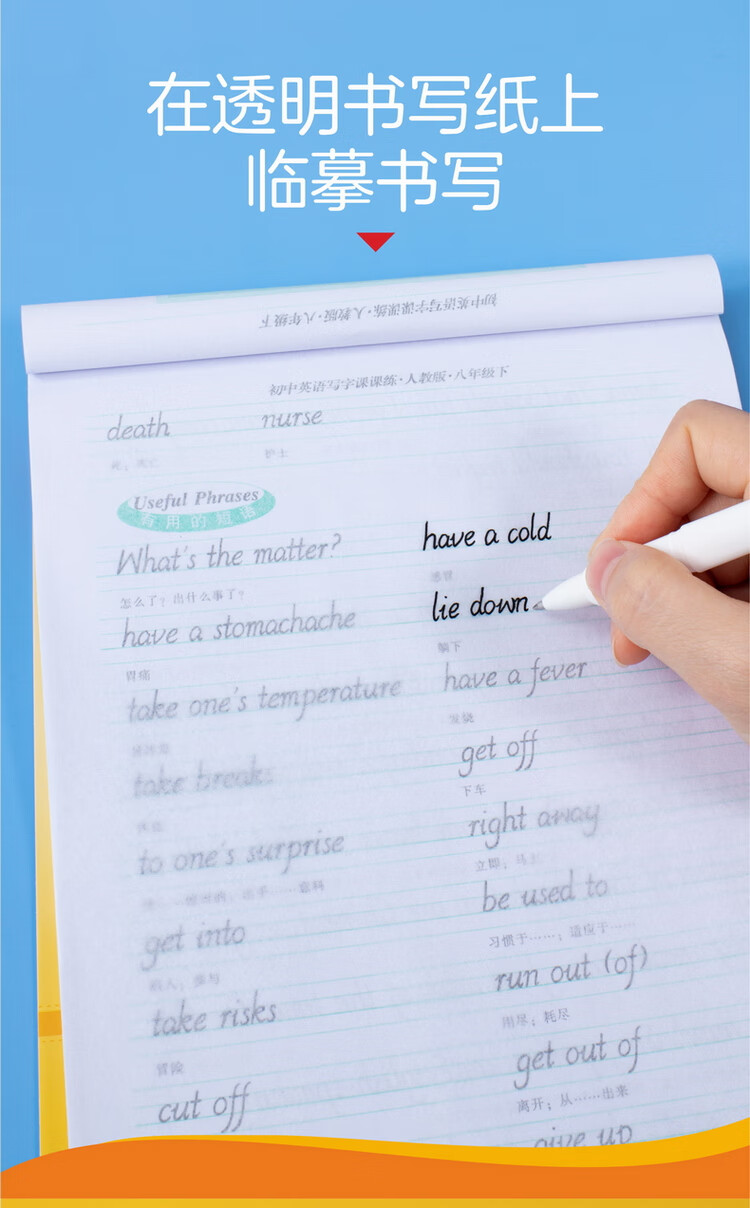 在透明书写纸上
临摹书写
初中英语写字课课练·人教版·八年级下
初中英语写字课课练·人教版·八年级下
death nurse
护士
Useful Phrases
有用的短语
What's the matter? have a cold
怎么了？出什么事了？ 感冒
have a stomachache lie down
胃痛 躺下
take one's temperature have a fever
发烧
take breaks get off
休息 下车
to one's surprise right away
立即；马上
get into be used to
习惯于……；适应于……
take risks run out (of)
冒险 用尽；耗尽
cut off get out of
离开；从……出来
give up